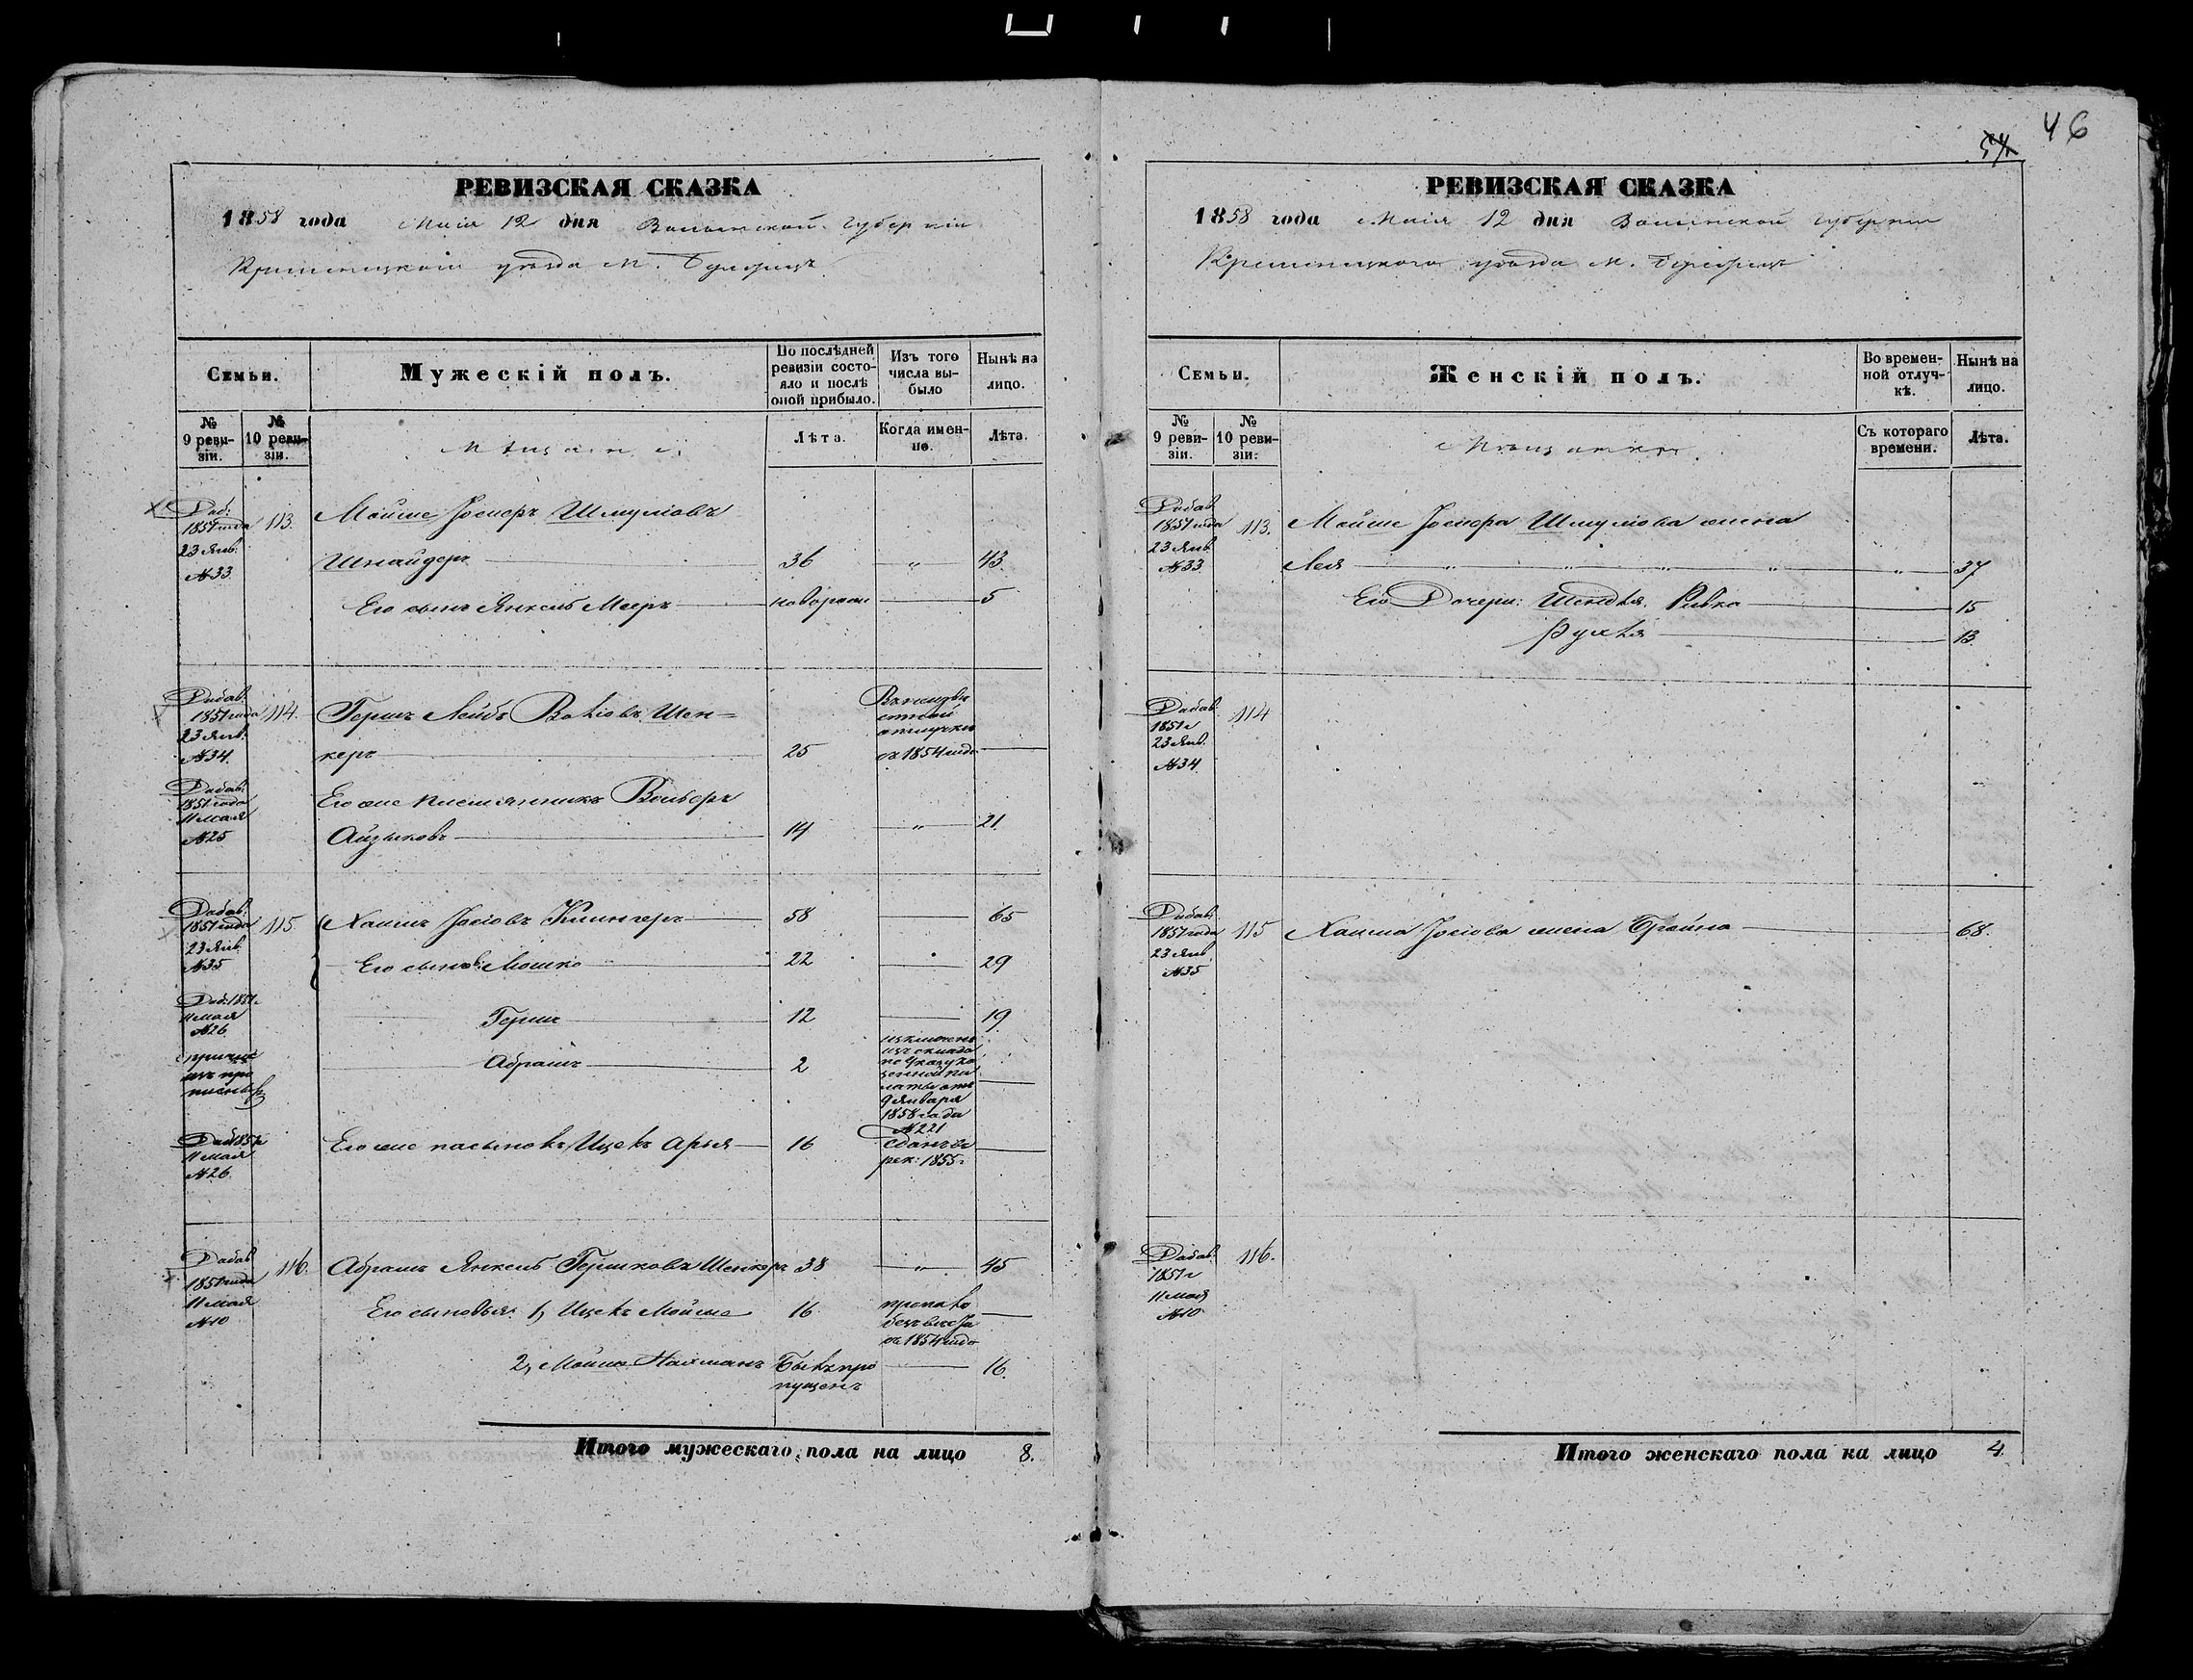 46
54
РЕВИЗСКАЯ СКАЗКА
1858 года Маія 12 дня Волынской губерніи
Кременецкаго уѣзда м.
Семьи.
Мужескій полъ.
По послѣдней ревизіи состояло и послѣ оной прибыло.
Изъ того числа выбыло
Нынѣ на лицо.
№ 9 ревизіи.
№ 10 ревизіи.
Мѣщане
Лѣта.
Когда именно.
Лѣта.
Доб: 1851 года 23 Янв: №33
113.
Мойше Іосифъ Шмулiовъ
Шнайдеръ 36 „ 43
Его сынъ Янкель Мееръ новорожд 5
Добав: 1851 года 23 Янв. №34.
114.
Гершъ Лейбъ Шен=
керъ 25 Въ неизвѣстной отлучкѣ съ 1854 года
Добав: 1851 года 11 мая №25
Его же племянникъ Вольфъ
Айзиковъ 14 „ 21.
Добав: 1851 года 23 Янв. №35
115.
Хаимъ Іосiовъ Клингеръ 58 65
Его сыновья: Мошко 22 29
Доб: 1851 г. 11 мая №26
Гершъ 12 19
Абрамъ 2 изключенъ изъ оклада по Указу Казенной Палаты отъ 9 Января 1858 года №221
Доб 1851 г 11 мая №26.
Его же пасынокъ Ицекъ Арья 16 сданъ въ рек: 1855 г
Добав 1851 года 11 мая №10
116.
Абрамъ Янкель Гершковъ Шенкеръ 38 „ 45
Его сыновья: 1, Ицекъ Мойше 16 пропалъ съ 1854 года
2, Мойше Нахманъ Былъ пропущенъ 16.
Итого мужескаго пола на лицо 8.
РЕВИЗСКАЯ СКАЗКА
1858 года Маія 12 дня Волынской губерніи
Кременецкаго уѣзда м.
Семьи.
Женскій полъ.
Во временной отлучкѣ.
Нынѣ на лицо.
№ 9 ревизіи.
№ 10 ревизіи.
Мѣщанки.
Съ котораго времени.
Лѣта.
Добав 1851 года 23 Янв. №33
113.
Мойше Іосифа Шмулiова жена
Лея „ 37
Его Дочери: Шендля Ривка 15
Рухля 13.
Добав. 1851 г 23 Янв. №34
114
Добав: 1851 года 23 Янв №35
115
Хаима Іосiова жена Фрейна 68.
Добав. 1851 г 11 мая №10
116.
Итого женскаго пола на лицо 4.